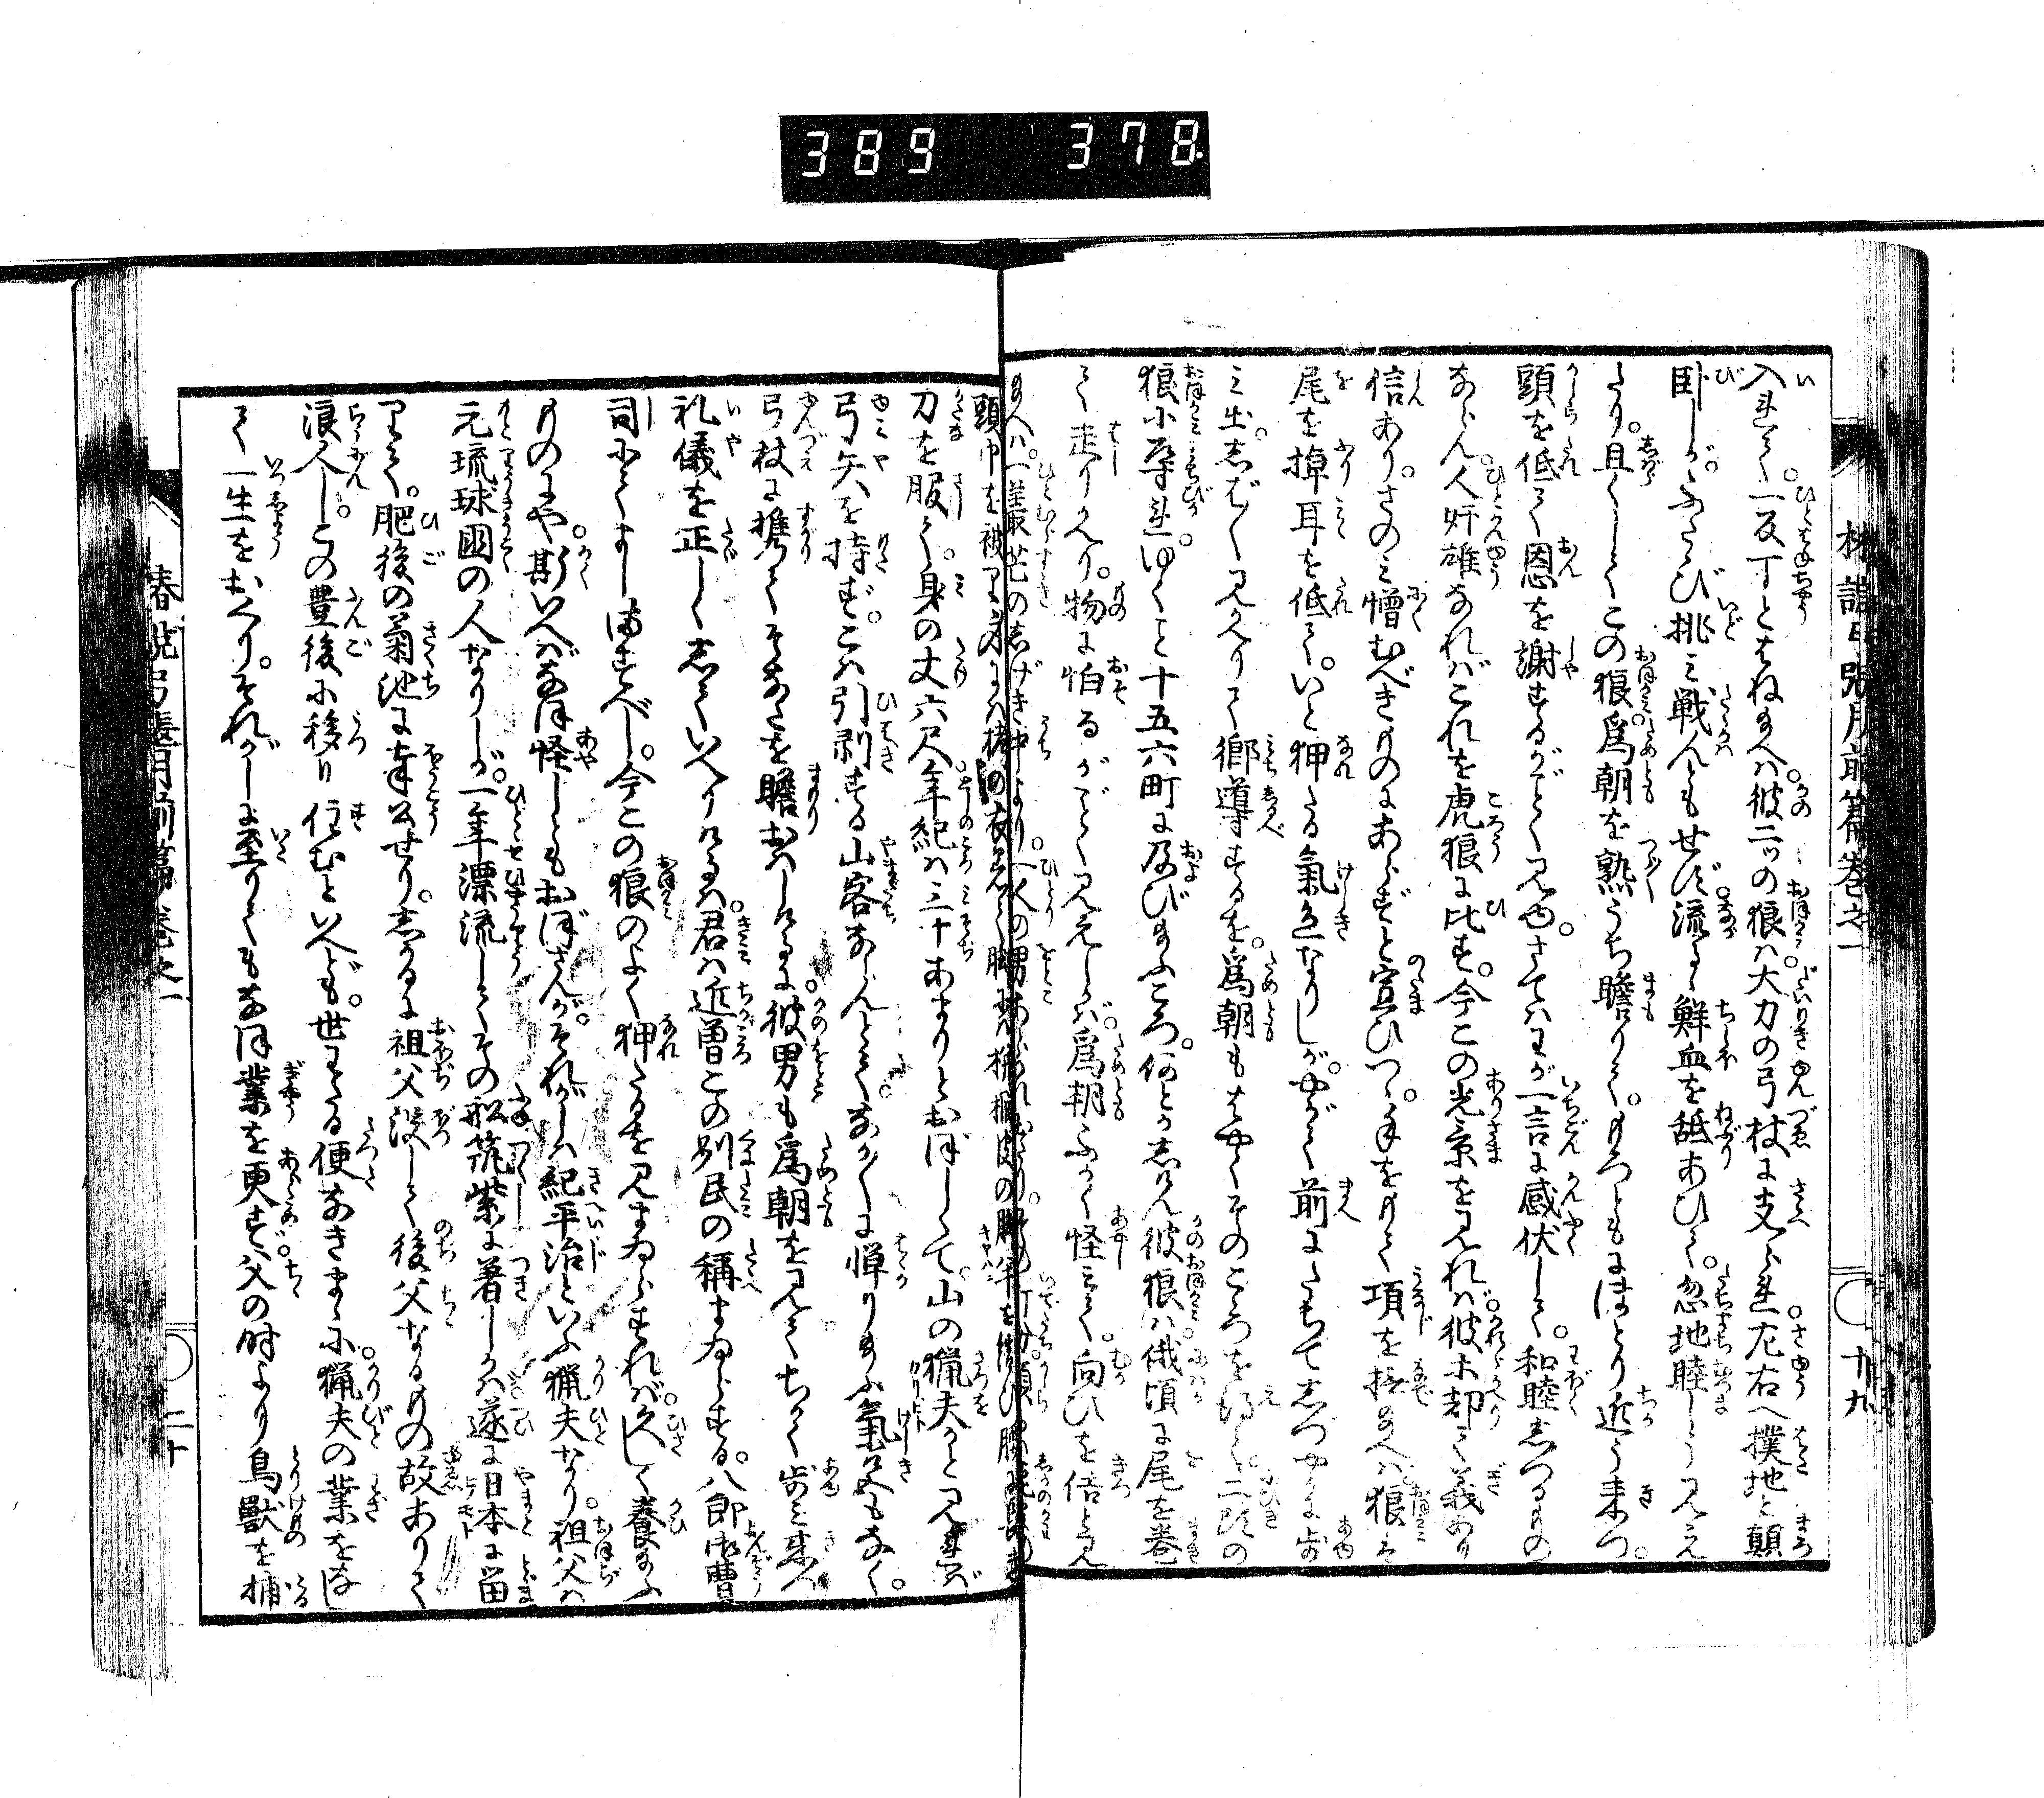 389 378
入れて。一反丁とはね給へは。彼二ッの狼は。大力の弓杖に支られ。左右へ撲地と顛
臥しが。ふたゝび挑み戦んともせず。流るゝ鮮血を舐あひて。忽地睦しう見え
たり。且くしてこの狼。爲朝を熟うち瞻りて。もろともにほとり近う来つ。
頭を低て恩を謝するがごとく見ゆ。さてはわが一言に感伏して。和睦しつるもの
ならん。人奸雄なればこれを虎狼に比す。今この光景を見れば。彼は却て義あり
信あり。さのみ憎むべきものにあらずと宣ひつゝ。手をもて項を撫給へは。狼は
尾を掉耳を低て。いと狎たる氣色なりしが。やがて前にたちてしづやかに歩
み出。しばしば見かへりて郷導するを。爲朝もはやくそのこゝろを得て。二頭の
狼小挈れ。ゆくこと十五六町に及び給ふころ。何とかしけん彼狼は。俄頃に尾を巻
て走りかへり。物に怕るがごとく見えしかば。爲朝ふかく怪みて。向ひを佶と見
給へは。一叢芒のしげき中より。一人の男あらはれ出たり。
刀を服て。身の丈六尺。年紀は三十あまりとおぼしくて。山の猟夫かと見れば
弓矢を持ず。こは引剥する山客ならんとて。なか〳〵に憚り給ふ氣色もなく。
弓杖に携りてそなたを瞻おはしけるに。彼男も爲朝を見てちかく歩み来へ
礼儀を正しくしていへりけるは。君は近曽この別民の稱まゐらする。八郎御曹
司にてましますべし。今この狼のよく狎たるを見まゐらすれば。久しく養給ふ
ものにや。斯いへばなほ怪しともおぼさんが。それがしは紀平治といふ猟夫なり。祖父は
元琉球國の人なりしが。一年漂流してその舩筑紫に着しかは。遂に日本に留
りて。肥後の菊池に奉公せり。しかるに祖父没して後。父なるもの故ありて
浪人し。この豊後に移り住むといへども。世わたる便なきまゝに。猟夫の業をな
して一生をおへり。それがしに至りてもなほ業を更ず。父の時より鳥獣を捕
椿説弓張月前篇巻之一
十九
椿説弓張月前篇巻之一
二十